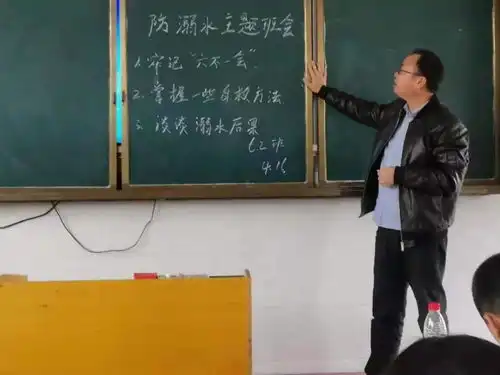 防溺水主题班会
1. 牢记"六不一会"。
2. 掌握一些自救方法
3. 谈谈溺水后果
七.2班
4.16